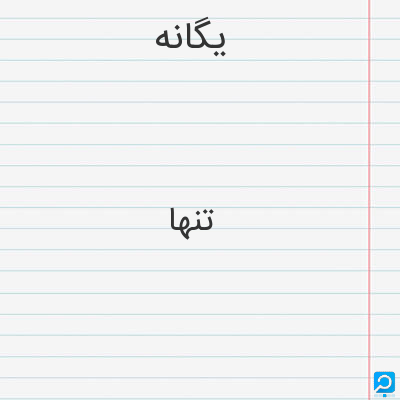 یگانه
تنها